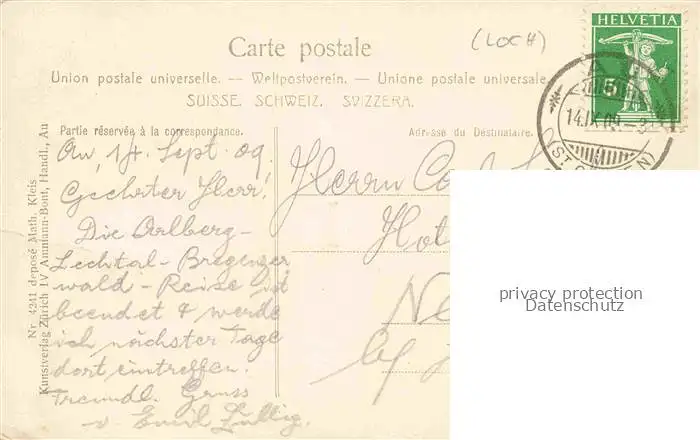 (LOCH)
HELVETIA
5
Carte postale
Union postale universelle. — Weltpostverein. — Unione postale universale.
SUISSE. SCHWEIZ. SVIZZERA.
14.IX.09.-3
(ST. G
EN)
Partie réservée à la correspondance.
Adresse du Destinataire.
Au, 14. Sept. 09.
Geehrter Herr!
Die Arlberg-
Lechtal-Bregenzer
wald-Reise ist
beendet & werde
ich nächster Tage
dort eintreffen.
Freundl. Gruss
v. Emil Zullig.
Herrn
Hot
Ne
by
Nr. 4241 deposé Math. Kleis
Kunstverlag Zürich IV Ammann-Bont, Handl., Au
privacy protection
Datenschutz